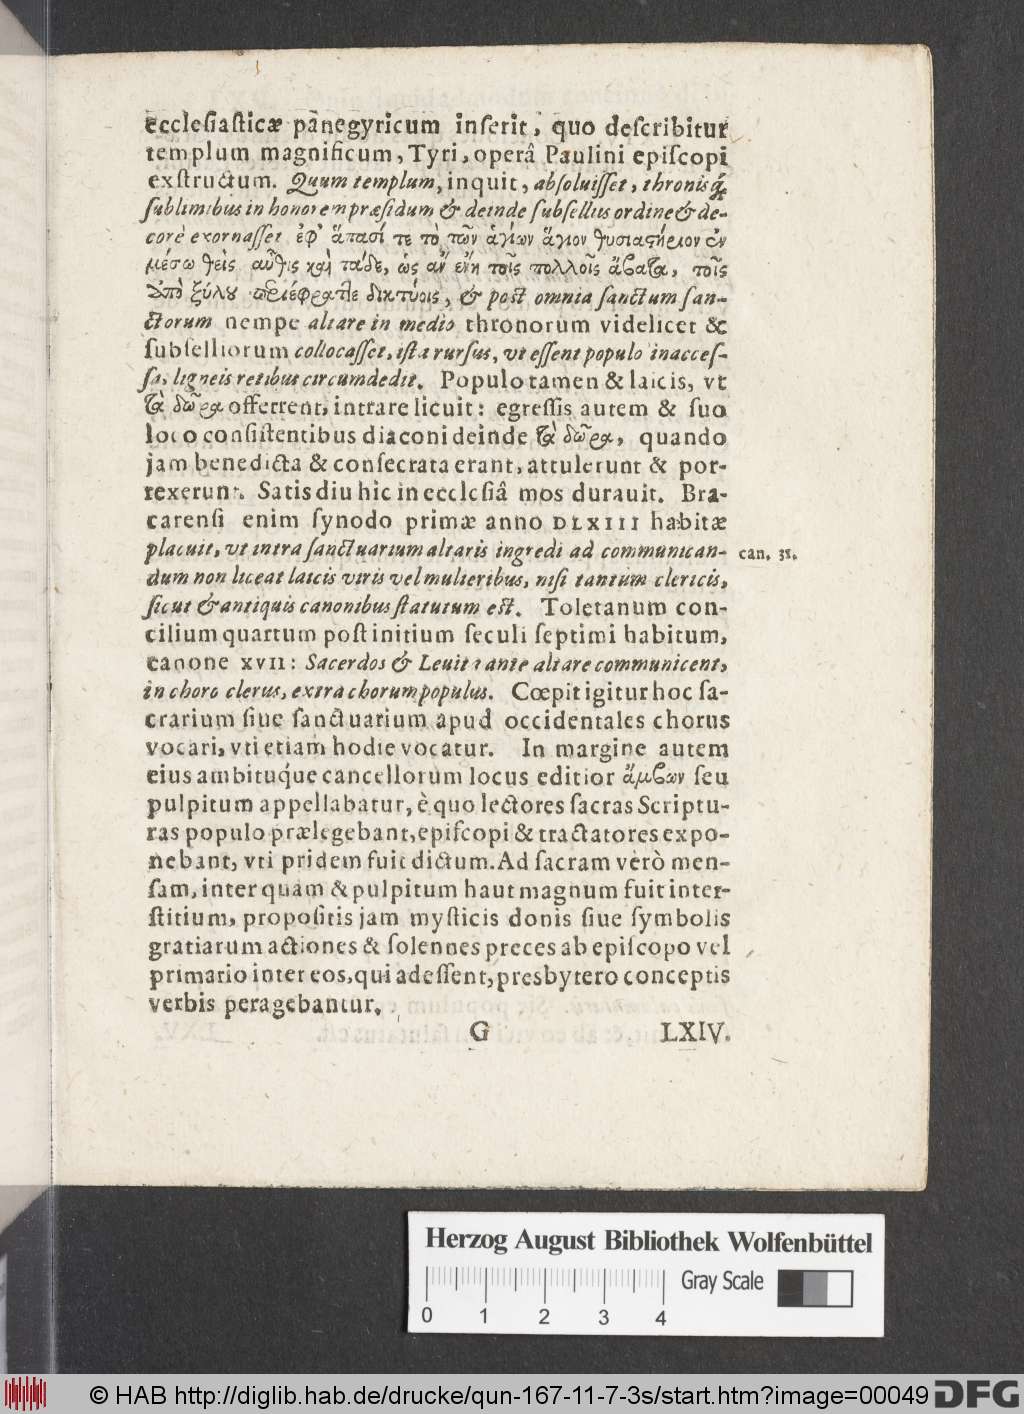 ecclesiasticæ panegyricum inserit, quo describitur
templum magnificum, Tyri, operâ Paulini episcopi
exstructum. Quum templum, inquit, absoluisset, thronisq́;
sublimibus in honorem præsidum & deinde subsellius ordine & de-
corè exornasset ἐφ' ἅπασί τε τὸ τῶν ἁγίων ἅγιον θυσιαστήριον ἐν
μέσῳ θεὶς αὖθις καὶ τάδε, ὡς ἂν εἴη τοῖς πολλοῖς ἄβατα, τοῖς
ἀπὸ ξύλου περιέφραττε δικτύοις, & post omnia sanctum san-
ctorum nempe altare in medio thronorum videlicet &
subselliorum collocasset, ista rursus, vt essent populo inacces-
sa, ligneis retibus circumdedit. Populo tamen & laicis, vt
τὰ δῶρα offerrent, intrare licuit: egressis autem & suo
loco consistentibus diaconi deinde τὰ δῶρα, quando
jam benedicta & consecrata erant, attulerunt & por-
rexerunt. Satis diu hic in ecclesiâ mos durauit. Bra-
carensi enim synodo primæ anno DLXIII habitæ
placuit, vt intra sanctuarium altaris ingredi ad communican- can. 31.
dum non liceat laicis viris vel mulieribus, nisi tantum clericis,
sicut & antiquis canonibus statutum est. Toletanum con-
cilium quartum post initium seculi septimi habitum,
canone XVII: Sacerdos & Leuita ante altare communicent,
in choro clerus, extra chorum populus. Cœpit igitur hoc sa-
crarium siue sanctuarium apud occidentales chorus
vocari, vti etiam hodie vocatur. In margine autem
eius ambituq́ue cancellorum locus editior ἄμβων seu
pulpitum appellabatur, è quo lectores sacras Scriptu-
ras populo prælegebant, episcopi & tractatores expo-
nebant, vti pridem fuit dictum. Ad sacram verò men-
sam, inter quam & pulpitum haut magnum fuit inter-
stitium, propositis jam mysticis donis siue symbolis
gratiarum actiones & solennes preces ab episcopo vel
primario inter eos, qui adessent, presbytero conceptis
verbis peragebantur.
G LXIV.
Herzog August Bibliothek Wolfenbüttel
Gray Scale
0 1 2 3 4
© HAB http://diglib.hab.de/drucke/qun-167-11-7-3s/start.htm?image=00049 DFG